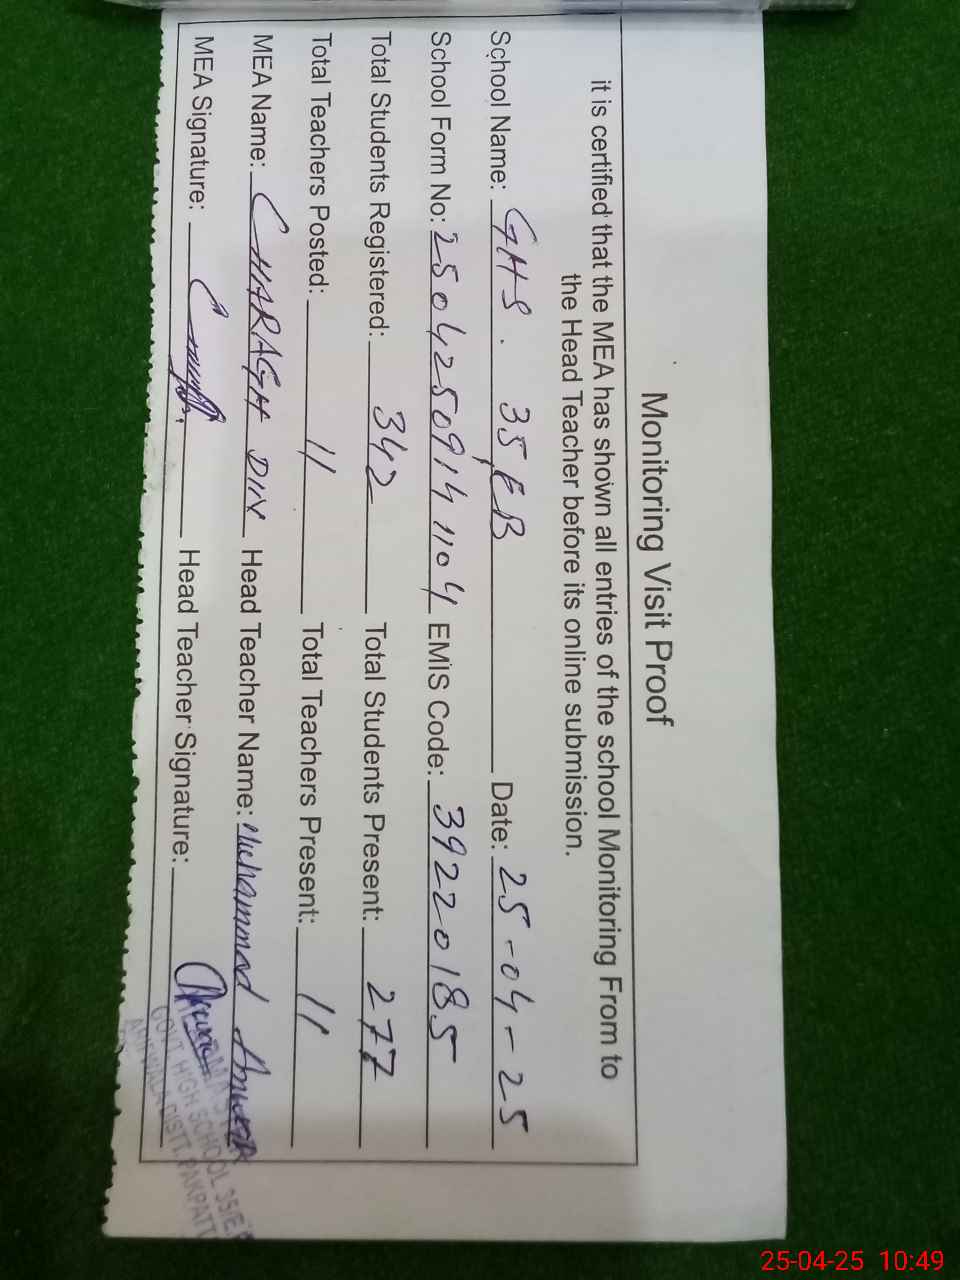 Monitoring Visit Proof
it is certified that the MEA has shown all entries of the school Monitoring From to
the Head Teacher before its online submission.
School Name: GHS. 35/EB Date: 25-04-25
School Form No: 25042509141104 EMIS Code: 39220185
Total Students Registered: 342 Total Students Present: 277
Total Teachers Posted: 11 Total Teachers Present: 11
MEA Name: CHARAGH DIN Head Teacher Name: Muhammad Anwar
MEA Signature: Head Teacher Signature:
GOVT. HIGH SCHOOL 35/E.B
ARIFWALA DISTT. PAKPATT
25-04-25 10:49